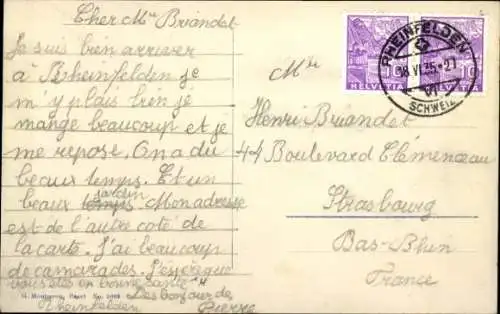 Cher Mr Briandet
Je suis bien arriver
à Rheinfelden je
m'y plais bien je
mange beaucoup et je
me repose. On a du
beaux temps. Et un
jardin
beaux temps. Mon adresse
est de l'autre coté de
la carte. J'ai beaucoup
de camarades. J'espère que
vous êtes en bonne santé
Les bonjour de
Rheinfelden Pierre
RHEINFELDEN
18.VI.35.-21
SCHWEIZ
10
HELVETIA
10
HELVETIA
Mr
Henri Briandet
44 Boulevard Clémenceau
Strasbourg
Bas-Rhin
France